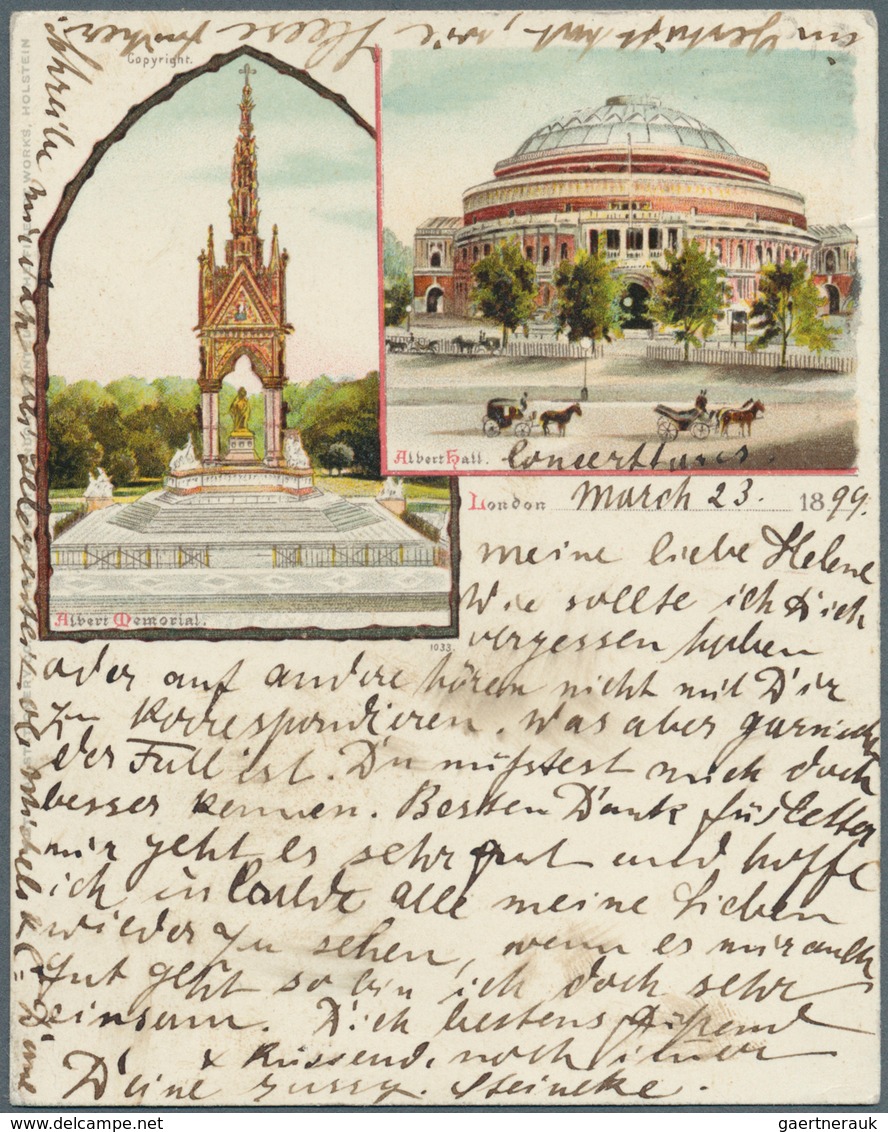 Copyright.
Albert Hall. Concerthaus.
London March 23. 1899.
Albert Memorial.
1033
meine liebe Helene
Wie sollte ich Dich
vergessen haben
oder auf andere hören nicht mit Dir
zu korrespondieren. Was aber garnicht
der Fall ist. Du müsstest mich doch
besser kennen. Besten Dank für letter
mir geht es sehr gut und hoffe
ich in balde alle meine Lieben
wieder zu sehen, wenn es mir auch
gut geht so bin ich doch sehr
einsam. Dich bestens grüßend
& Küssend, noch immer
Deine Steineke.
schreibe mir
wie
WORKS, HOLSTEIN
gaertnerauk